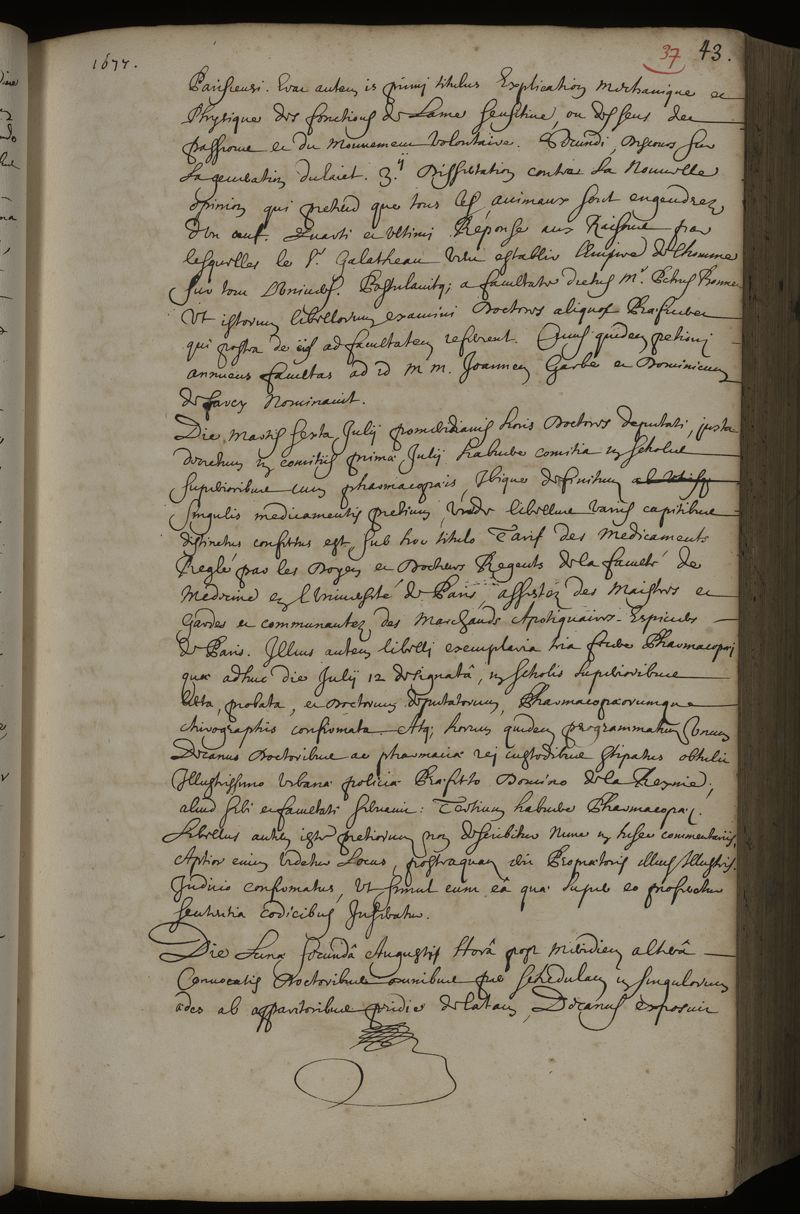 1677.
37 43.
Parisiensi. Erat autem is primj titulus Explication Mechanique et
Physique des fonctions de Lame sensitive, ou des sens des
passions et du Mouvement volontaire. Secundi, Discours sur
La generation du laict. 3.ij Dissertation contre La Nouvelle
opinion qui pretend que tous les animaux sont engendrez
d'un oeuf. Quarti et ultimi Reponse aux Raisons par
lesquelles le Sr. Galatheau veut establir l'Empire de l'homme
sur tout l'Univers. Postulavitq; a facultate dictus Mr. Petrus
Ut istorum libellorum examini Doctores aliquot Praeficerentur
qui postea de iis ad facultatem referrent. Cuius quidem petionj
annuens facultas ad id M M. Joannem Garbe et Dominicum
de farcy Nominavit.
Die Martis sexta Julij pomeridianis horis Doctores deputati, juxta
decretum in comitiis prima Julij habuere comitia in scholis
superioribus cum pharmacopaeis, Ibique definitum
singulis medicamentis pretium, Unde libellus variis capitibus
distinctus confectus est sub hoc titulo Tarif des Medicaments
Reglé par les Doyen et Docteurs Regents de la faculté de
Medecine en l'Université de Paris, assistez des Maistres et
Gardes et communautez des Marchands Apotiquaires-Espiciers
de Paris. Illius autem libelli exemplaria tria fecere Pharmacopaej
quae adhuc die Julij 12 designatâ, in scholis superioribus
lecta, probata, et Doctorum deputatorum, Pharmacopaeorumque
chirographis confirmata. Atq; horum quidem programmatum Unum
Decanus Doctoribus ac pharmaciae rej custodibus stipatus obtulit
Illustrissimo Urbanae policiae Praefecto Domino de la Reynie;
aliud sibi et facultati servavit: Tertium habuere Pharmacopaej.
Libellus autem iste pretiorum non describitur Nunc in hisce commentariis,
Aptior enim videtur Locus, postquam illius Illustris.
Judicio confirmatus, Ut simul cum eâ quae super eo proferetur
sententia codicibus Inseratur.
Die Lunae secundâ Augusti Horâ post Meridiem alterâ
Convocatis Doctoribus omnibus per schedulam in singulorum
aedes ab apparitoribus pridie delatam, Decanus exposuit